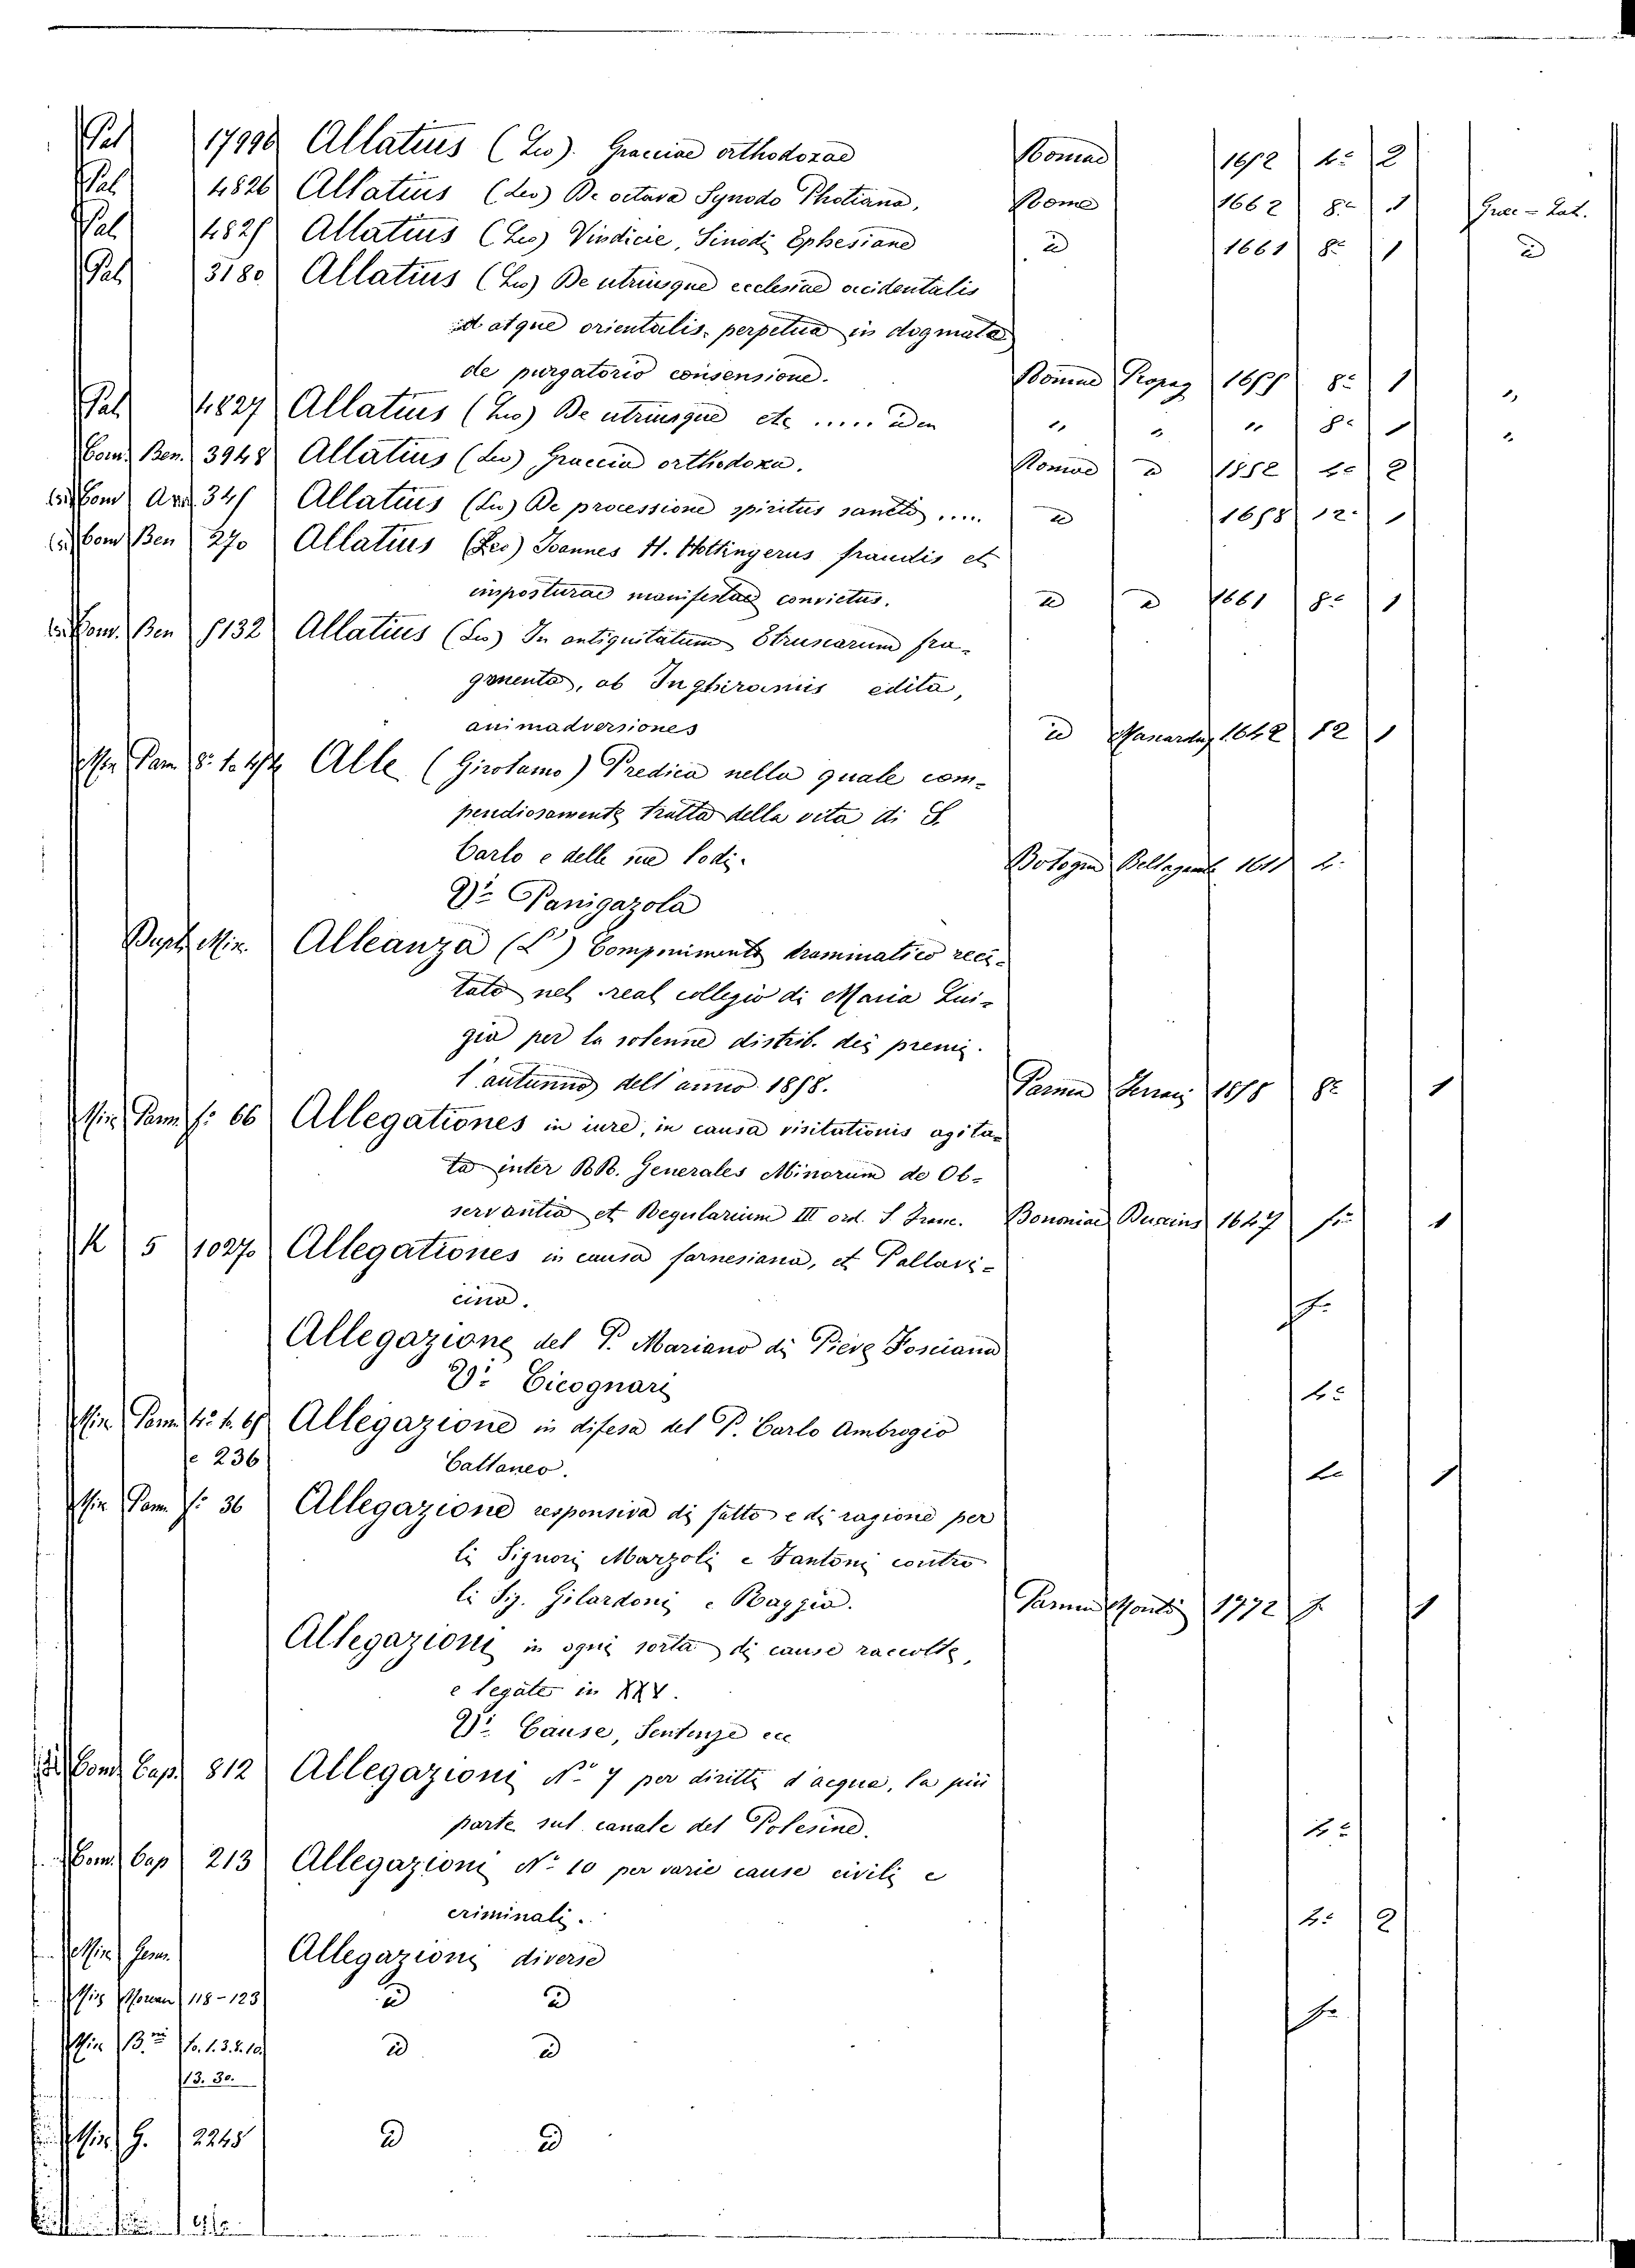 Pal 17998 Allatius (Leo). Graeciae orthodoxae Romae 1652 4° 2
Pal 4826 Allatius (Leo) De octava Synodo Photiana, Rome 1662 8° 1 Grec - Lat.
Pal 4825 Allatius (Leo) Vindicie, Sinodi Ephesiane id 1661 8° 1 id
Pal 3180 Allatius (Leo) De utriusque ecclesiae occidentalis
atque orientalis perpetua in dogmate
de purgatorio consensione. Romae Propag 1655 8° 1 "
Pal 4827 Allatius (Leo) De utriusque etc ..... iden " " " 8° 1 "
Com. Ben. 3948 Allatius (Leo) Graecia orthodoxa. Romae id 1652 4° 2
Com Arr 345 Allatius (Leo) De processione spiritus sancti ..... id 1658 12° 1
Com Ben 270 Allatius (Leo) Joannes H. Hottingerus fraudis et
imposturae manifestae convictus. id id 1661 8° 1
Com. Ben 5132 Allatius (Leo) In antiquitatum Etruscarum fra-
gmenta, ab Inghiramis edita,
animadversiones id Mascardus 1642 12 1
Min Pam 8° Alle (Girolamo) Predica nella quale com-
pendiosamente tratta della vita di S.
Carlo e delle sue lodi. Bologna Bellagamb 1611 4°
Vi Panigazola
Min. Alleanza (L') Componimento drammatico reci-
tato nel real collegio di Maria Lui-
gia per la solenne distrib. dei premi.
l'autunno dell'anno 1858. Parma 1858 8° 1
Min Parm f. 66 Allegationes in iure, in causa visitationis agita-
ta inter RR. Generales Minorum de Ob-
servantia et Regularium III ord. S Franc. Bononiae 1647 fo 1
K 5 10270 Allegationes in causa farnesiana, et Pallavi-
cina. f.
Allegazione del P. Mariano di Pieve Fosciana
Vi Cicognari 4°
Min Parm 4° Allegazione in difesa del P. Carlo Ambrogio
e 236 Cattaneo. 4° 1
Min Parm f. 36 Allegazione responsiva di fatto e di ragione per
li Signori Marzoli e Fantoni contro
li Sig. Gilardoni e Raggia. Parma Monti 1772 f. 1
Allegazioni in ogni sorta di cause raccolte,
e legate in XXV.
Vi Cause, Sentenze ecc
Com Cap. 812 Allegazioni N° 7 per diritti d'acqua, la più
parte sul canale del Polesine. 4°
Com Cap 213 Allegazioni N° 10 per varie cause civili e
criminali. 4° 2
Min Allegazioni diverse
118-123 id id fo
Min id id
13. 30.
Min G. 2245 id id